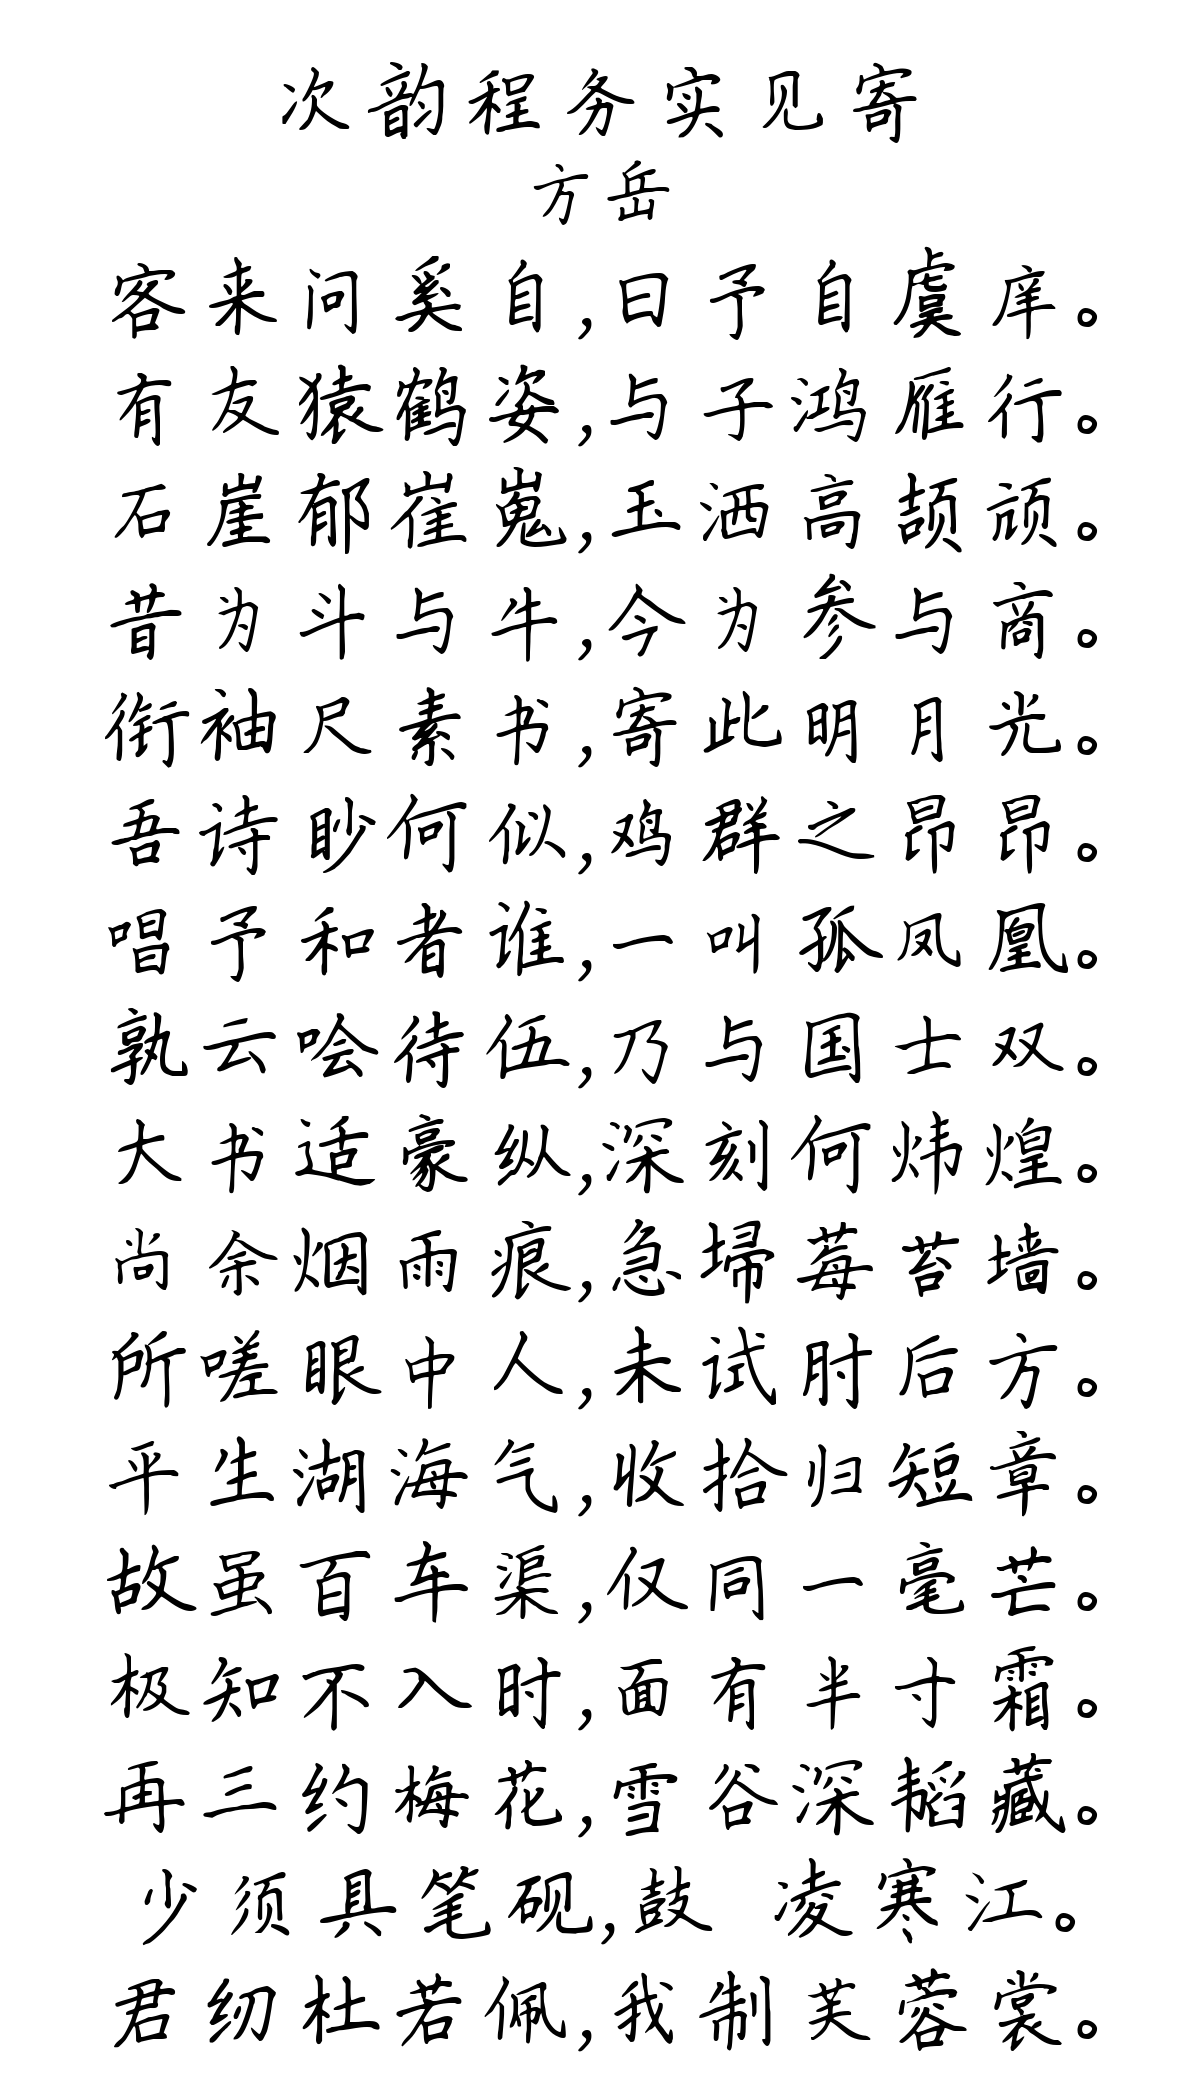 次韵程务实见寄
方岳
客来问奚自,曰予自虞庠。
有友猿鹤姿,与子鸿雁行。
石崖郁崔嵬,玉洒高颉颃。
昔为斗与牛,今为参与商。
衔袖尺素书,寄此明月光。
吾诗眇何似,鸡群之昂昂。
唱予和者谁,一叫孤凤凰。
孰云哙待伍,乃与国士双。
大书适豪纵,深刻何炜煌。
尚余烟雨痕,急埽莓苔墙。
所嗟眼中人,未试肘后方。
平生湖海气,收拾归短章。
故虽百车渠,仅同一毫芒。
极知不入时,面有半寸霜。
再三约梅花,雪谷深韬藏。
少须具笔砚,鼓 凌寒江。
君纫杜若佩,我制芙蓉裳。